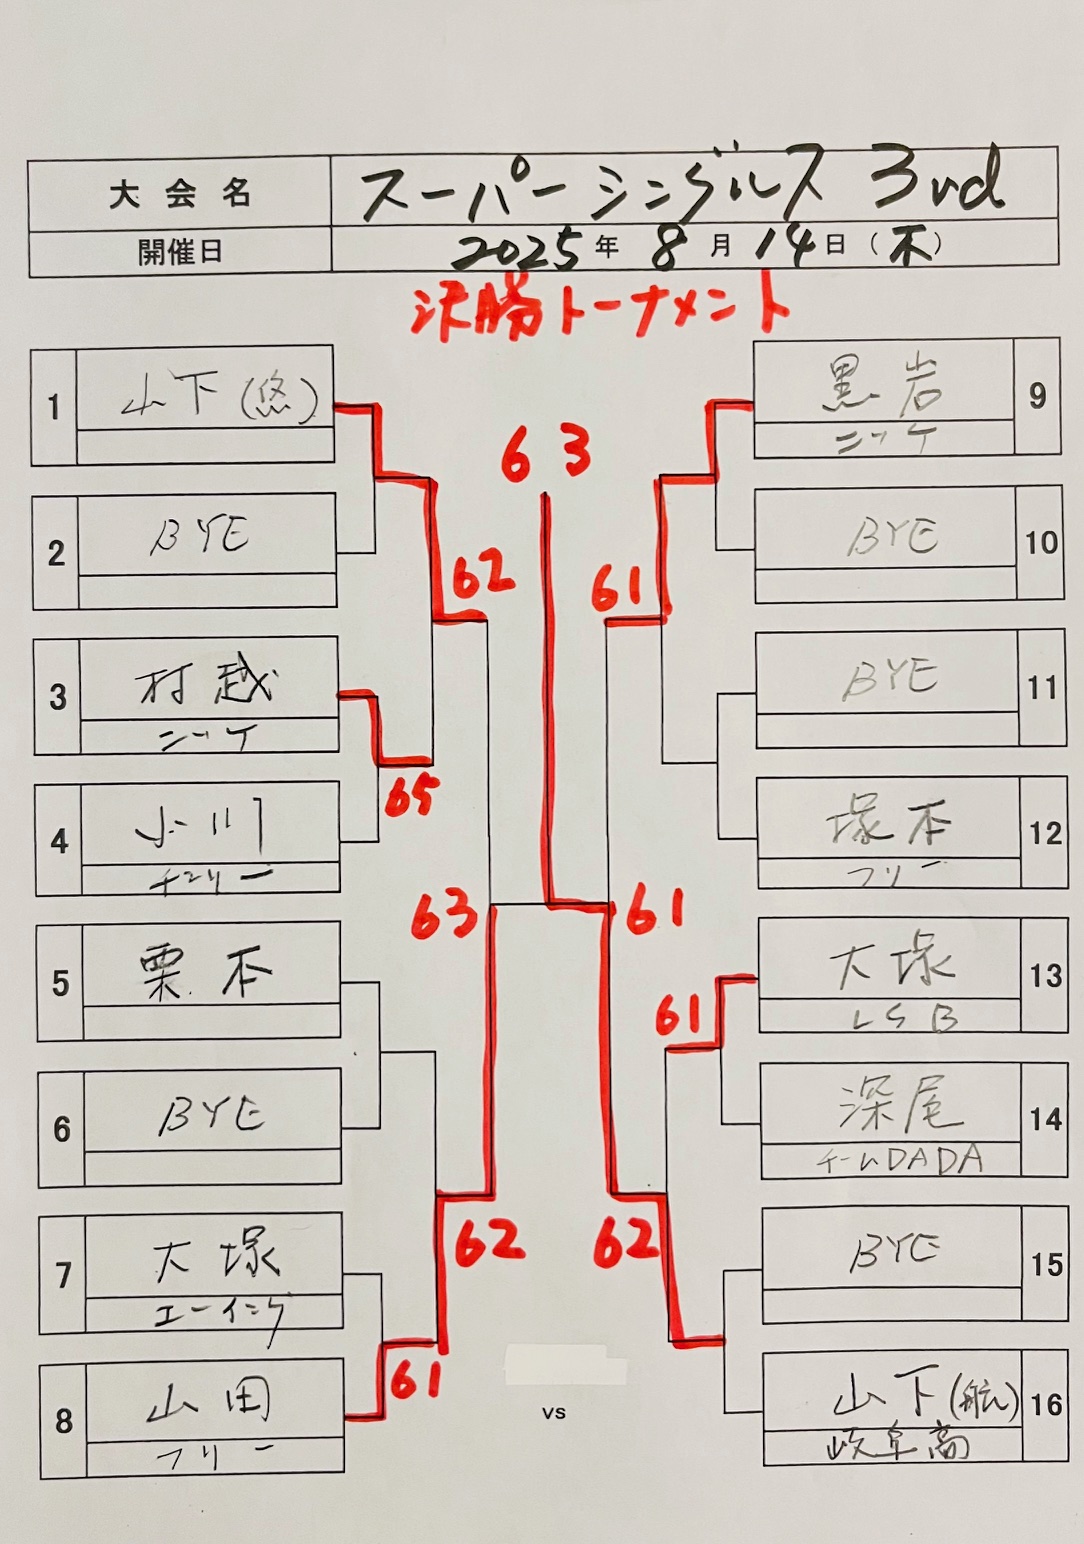 大会名 スーパーシングルス 3rd
開催日 2025年 8月 14日(木)
決勝トーナメント
1 山下(悠)
2 BYE
3 村越
ニッケ
4 小川
チェリー
5 栗本
6 BYE
7 大塚
エーイング
8 山田
フリー
63
62
65
63
62
61
61
61
61
62
vs
黒岩 9
ニッケ
BYE 10
BYE 11
塚本 12
フリー
大塚 13
LSB
深尾 14
チームDADA
BYE 15
山下(航) 16
岐阜高